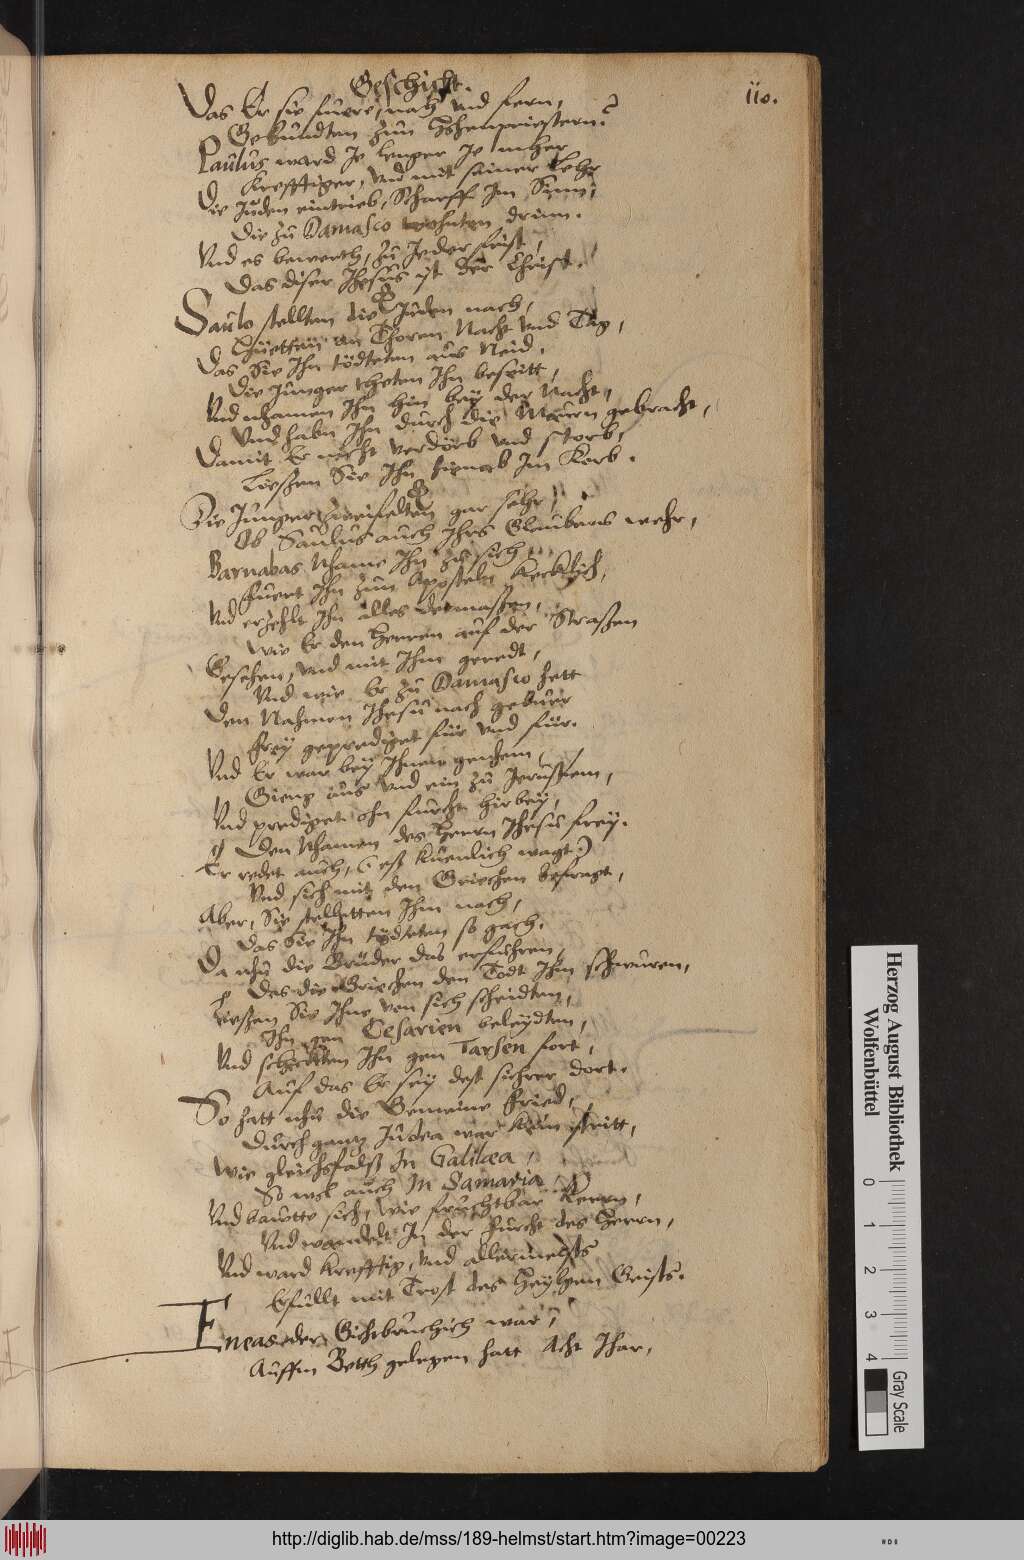 Geschicht.
110.
Das Er sie fuere, nah vnd fern,
Gebundten zun Hohenpriestern?
Paulus ward Je lenger Je mher
Krefftiger, vnd mit seiner Lehr
Die Juden eintrieb, Scharff Im Sinn,
Die zu Damasco wohnten drinn.
Vnd es bewerth, zu Jeder frist,
Das diser Jhesus ist der Christ.
Saulo stellten die Juden nach,
an Thoren Nacht vnd Tag,
Das Sie Ihn tödteten aus Neid.
Die Junger theten Ihn
Vnd nhamen Ihn hin bey der Nacht,
Vnd habn Ihn durch die Mauren gebracht,
Damit Er nicht verdörb vnd storb,
Liessen Sie Ihn hinab Im Korb.
Die Junger zweifelten gar sehr,
Ob Saulus auch Ihrs Glaubens wehr,
Barnabas Nhame Ihn zu sich
fuert Ihn zun Aposteln Kecklich,
Vnd erzehlt Ihn alles dermassen,
Wie Er den Herren auf der Strassen
Gesehen, vnd mit Ihm geredt,
Vnd wie Er zu Damasco hett
Den Nahmen Jhesu nach gebuer
frey geprediget für vnd für.
Vnd Er war bey Ihnen
Gieng aus vnd ein zu Jerusalem,
Vnd prediget ohn furcht hirbey,
Den Nhamen des Herrn Jhesu frey.
Er redet auch, (est kuenlich wagt)
Vnd sich mit den Griechen befragt,
Aber, Sie stelletten Ihm nach,
Das Sie Ihn tödteten so gach.
Da nhu die Brüder das erfuhren,
Das die Griechen den Todt Ihm schwuren,
Liessen Sie Ihne von sich scheidten,
Ihn gen Cesarien beleydten,
Vnd schickten Ihn gen Tarsen fort,
Auf das Er sey dest sichrer dort.
So hatt nhu die Gemeine fried,
Durch gantz Judea war kein stritt,
Wie gleichsfalss In Galilæa,
So wol auch In Samaria
Vnd bawtte sich, wie fruchtbar
Vnd wandelt In der furcht des Herrn,
Vnd ward Krefftig, vnd allermeists
Erfüllt mit Trost des Heylgen Geists.
Eneas der Gichtbruchich war,
Auffm Betth gelegen hatt Acht Jhar,
Herzog August Bibliothek
Wolfenbüttel
0 1 2 3 4
Gray Scale
http://diglib.hab.de/mss/189-helmst/start.htm?image=00223